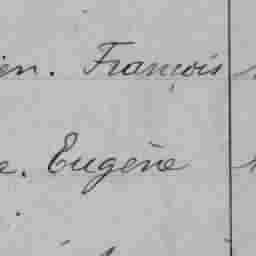 en. François
e. Eugène